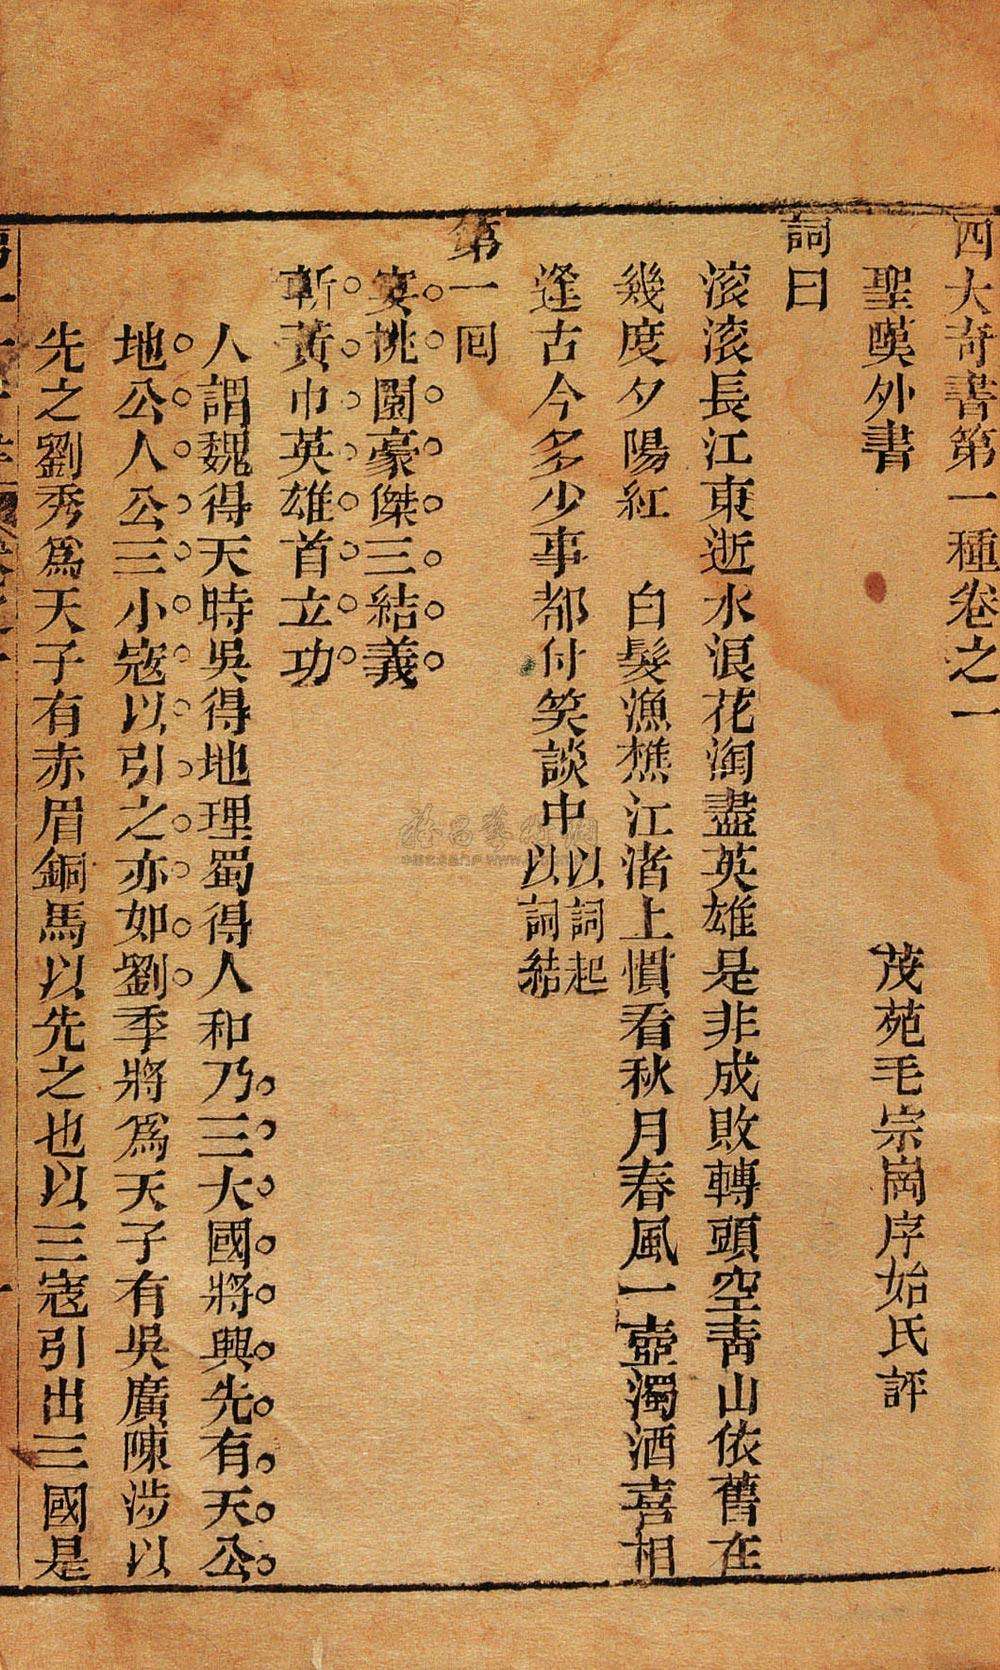 四大奇書第一種卷之一
聖嘆外書
茂苑毛宗崗序始氏評
詞曰
滚滚長江東逝水浪花淘盡英雄是非成敗轉頭空青山依舊在
幾度夕陽紅　白髮漁樵江渚上慣看秋月春風一壺濁酒喜相
逢古今多少事都付笑談中
以詞起
以詞結
第一回
宴桃園豪傑三結義
斬黃巾英雄首立功
人謂魏得天時吳得地理蜀得人和乃三大國將興先有天公
地公人公三小寇以引之亦如劉季將爲天子有吳廣陳涉以
先之劉秀爲天子有赤眉銅馬以先之也以三寇引出三國是